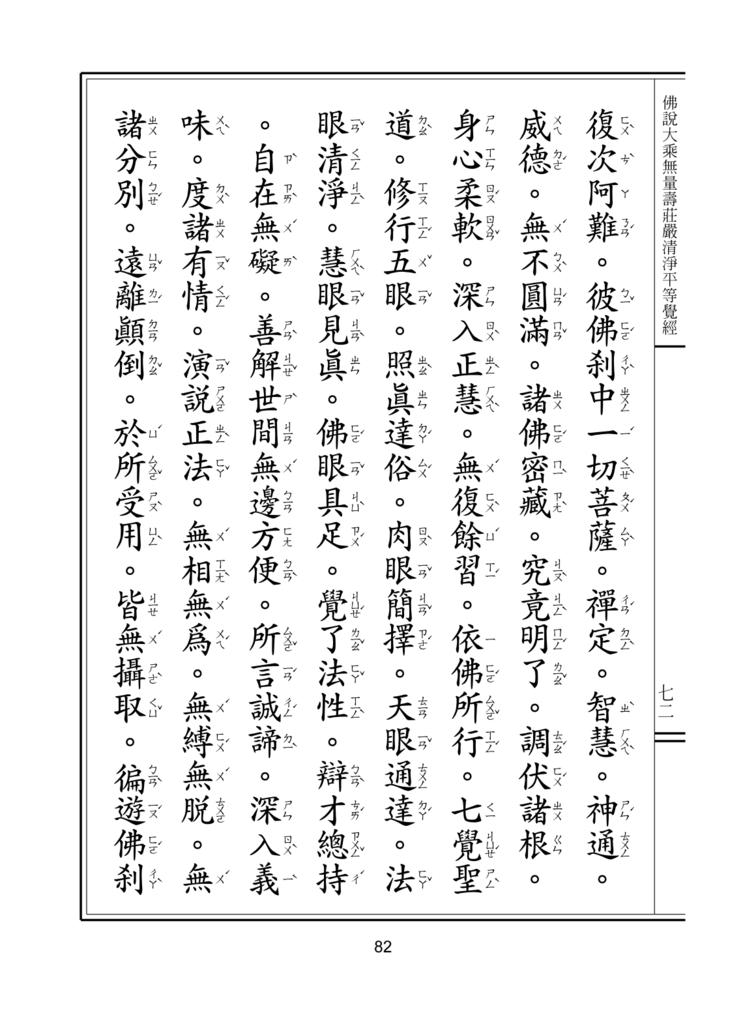 佛說大乘無量壽莊嚴清淨平等覺經
七二
復次阿難。彼佛剎中一切菩薩。禪定。智慧。神通。
威德。無不圓滿。諸佛密藏。究竟明了。調伏諸根。
身心柔軟。深入正慧。無復餘習。依佛所行。七覺聖
道。修行五眼。照眞達俗。肉眼簡擇。天眼通達。法
眼清淨。慧眼見眞。佛眼具足。覺了法性。辯才總持
。自在無礙。善解世間無邊方便。所言誠諦。深入義
味。度諸有情。演說正法。無相無爲。無縛無脫。無
諸分別。遠離顚倒。於所受用。皆無攝取。徧遊佛剎
82